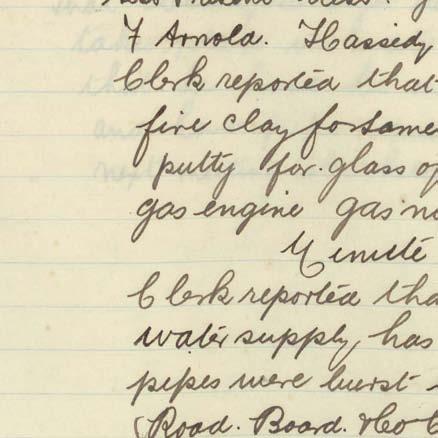 F Arnold. Hassedy
Clerk reported that
fire clay for same
putty for glass of
gas engine gas
Minute
Clerk reported tha
water supply has
pipes were burst
(Road. Board. &